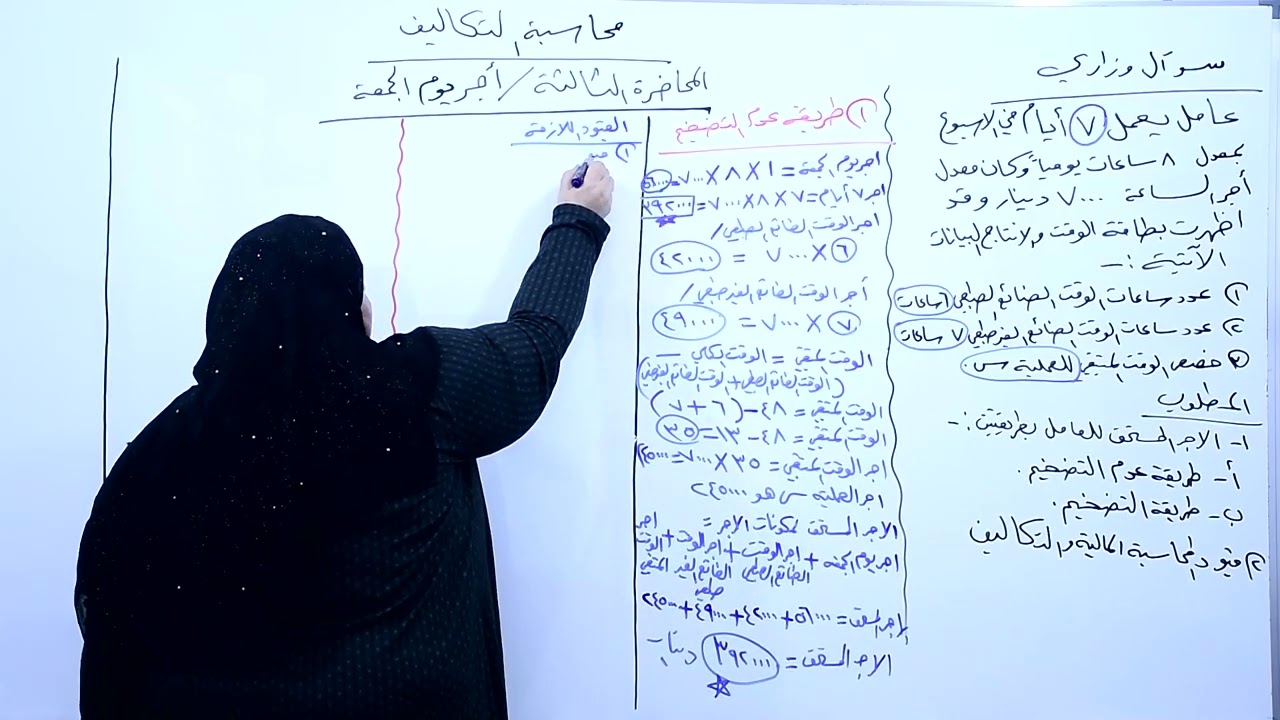 محاسبة التكاليف
المحاضرة الثالثة / أجر يوم الجمعة
سؤال وزاري
عامل يعمل ٧ أيام في الاسبوع
بمعدل ٨ ساعات يومياً وكان معدل
أجر الساعة ٧٠٠٠ دينار وقد
اظهرت بطاقة الوقت والانتاج البيانات
الآتية :ـ
١) عدد ساعات الوقت الضائع الطبيعي ٦ ساعات
٢) عدد ساعات الوقت الضائع الغير طبيعي ٧ ساعات
٣) خصص الوقت المتبقي للعملية س.
المطلوب
١- الاجر المستحق للعامل بطريقتين :ـ
أ- طريقة عدم التضخيم.
ب- طريقة التضخيم.
٢) قيود المحاسبة المالية والتكاليف
١) طريقة عدم التضخيم
اجر يوم الجمعة = ١ × ٨ × ٧٠٠٠ = ٥٦٠٠٠
اجر ٧ أيام = ٧ × ٨ × ٧٠٠٠ = ٣٩٢٠٠٠
اجر الوقت الضائع الطبيعي /
٦ × ٧٠٠٠ = ٤٢٠٠٠
أجر الوقت الضائع الغير طبيعي /
٧ × ٧٠٠٠ = ٤٩٠٠٠
الوقت المتبقي = الوقت الكلي –
(الوقت الضائع الطبيعي + الوقت الضائع الغير طبيعي)
الوقت المتبقي = ٤٨ - (٦ + ٧)
الوقت المتبقي = ٤٨ - ١٣ = ٣٥
اجر الوقت المتبقي = ٣٥ × ٧٠٠٠ = ٢٤٥٠٠٠
اجر العملية س هو ٢٤٥٠٠٠
الاجر المستحق لمكونات الاجر =
اجر يوم الجمعة + اجر الوقت الضائع الطبيعي + اجر الوقت الضائع الغير طبيعي + اجر الوقت المتبقي
الاجر المستحق = ٥٦٠٠٠ + ٤٢٠٠٠ + ٤٩٠٠٠ + ٢٤٥٠٠٠
الاجر المستحق = ٣٩٢٠٠٠ دينار
القيود اللازمة
١)